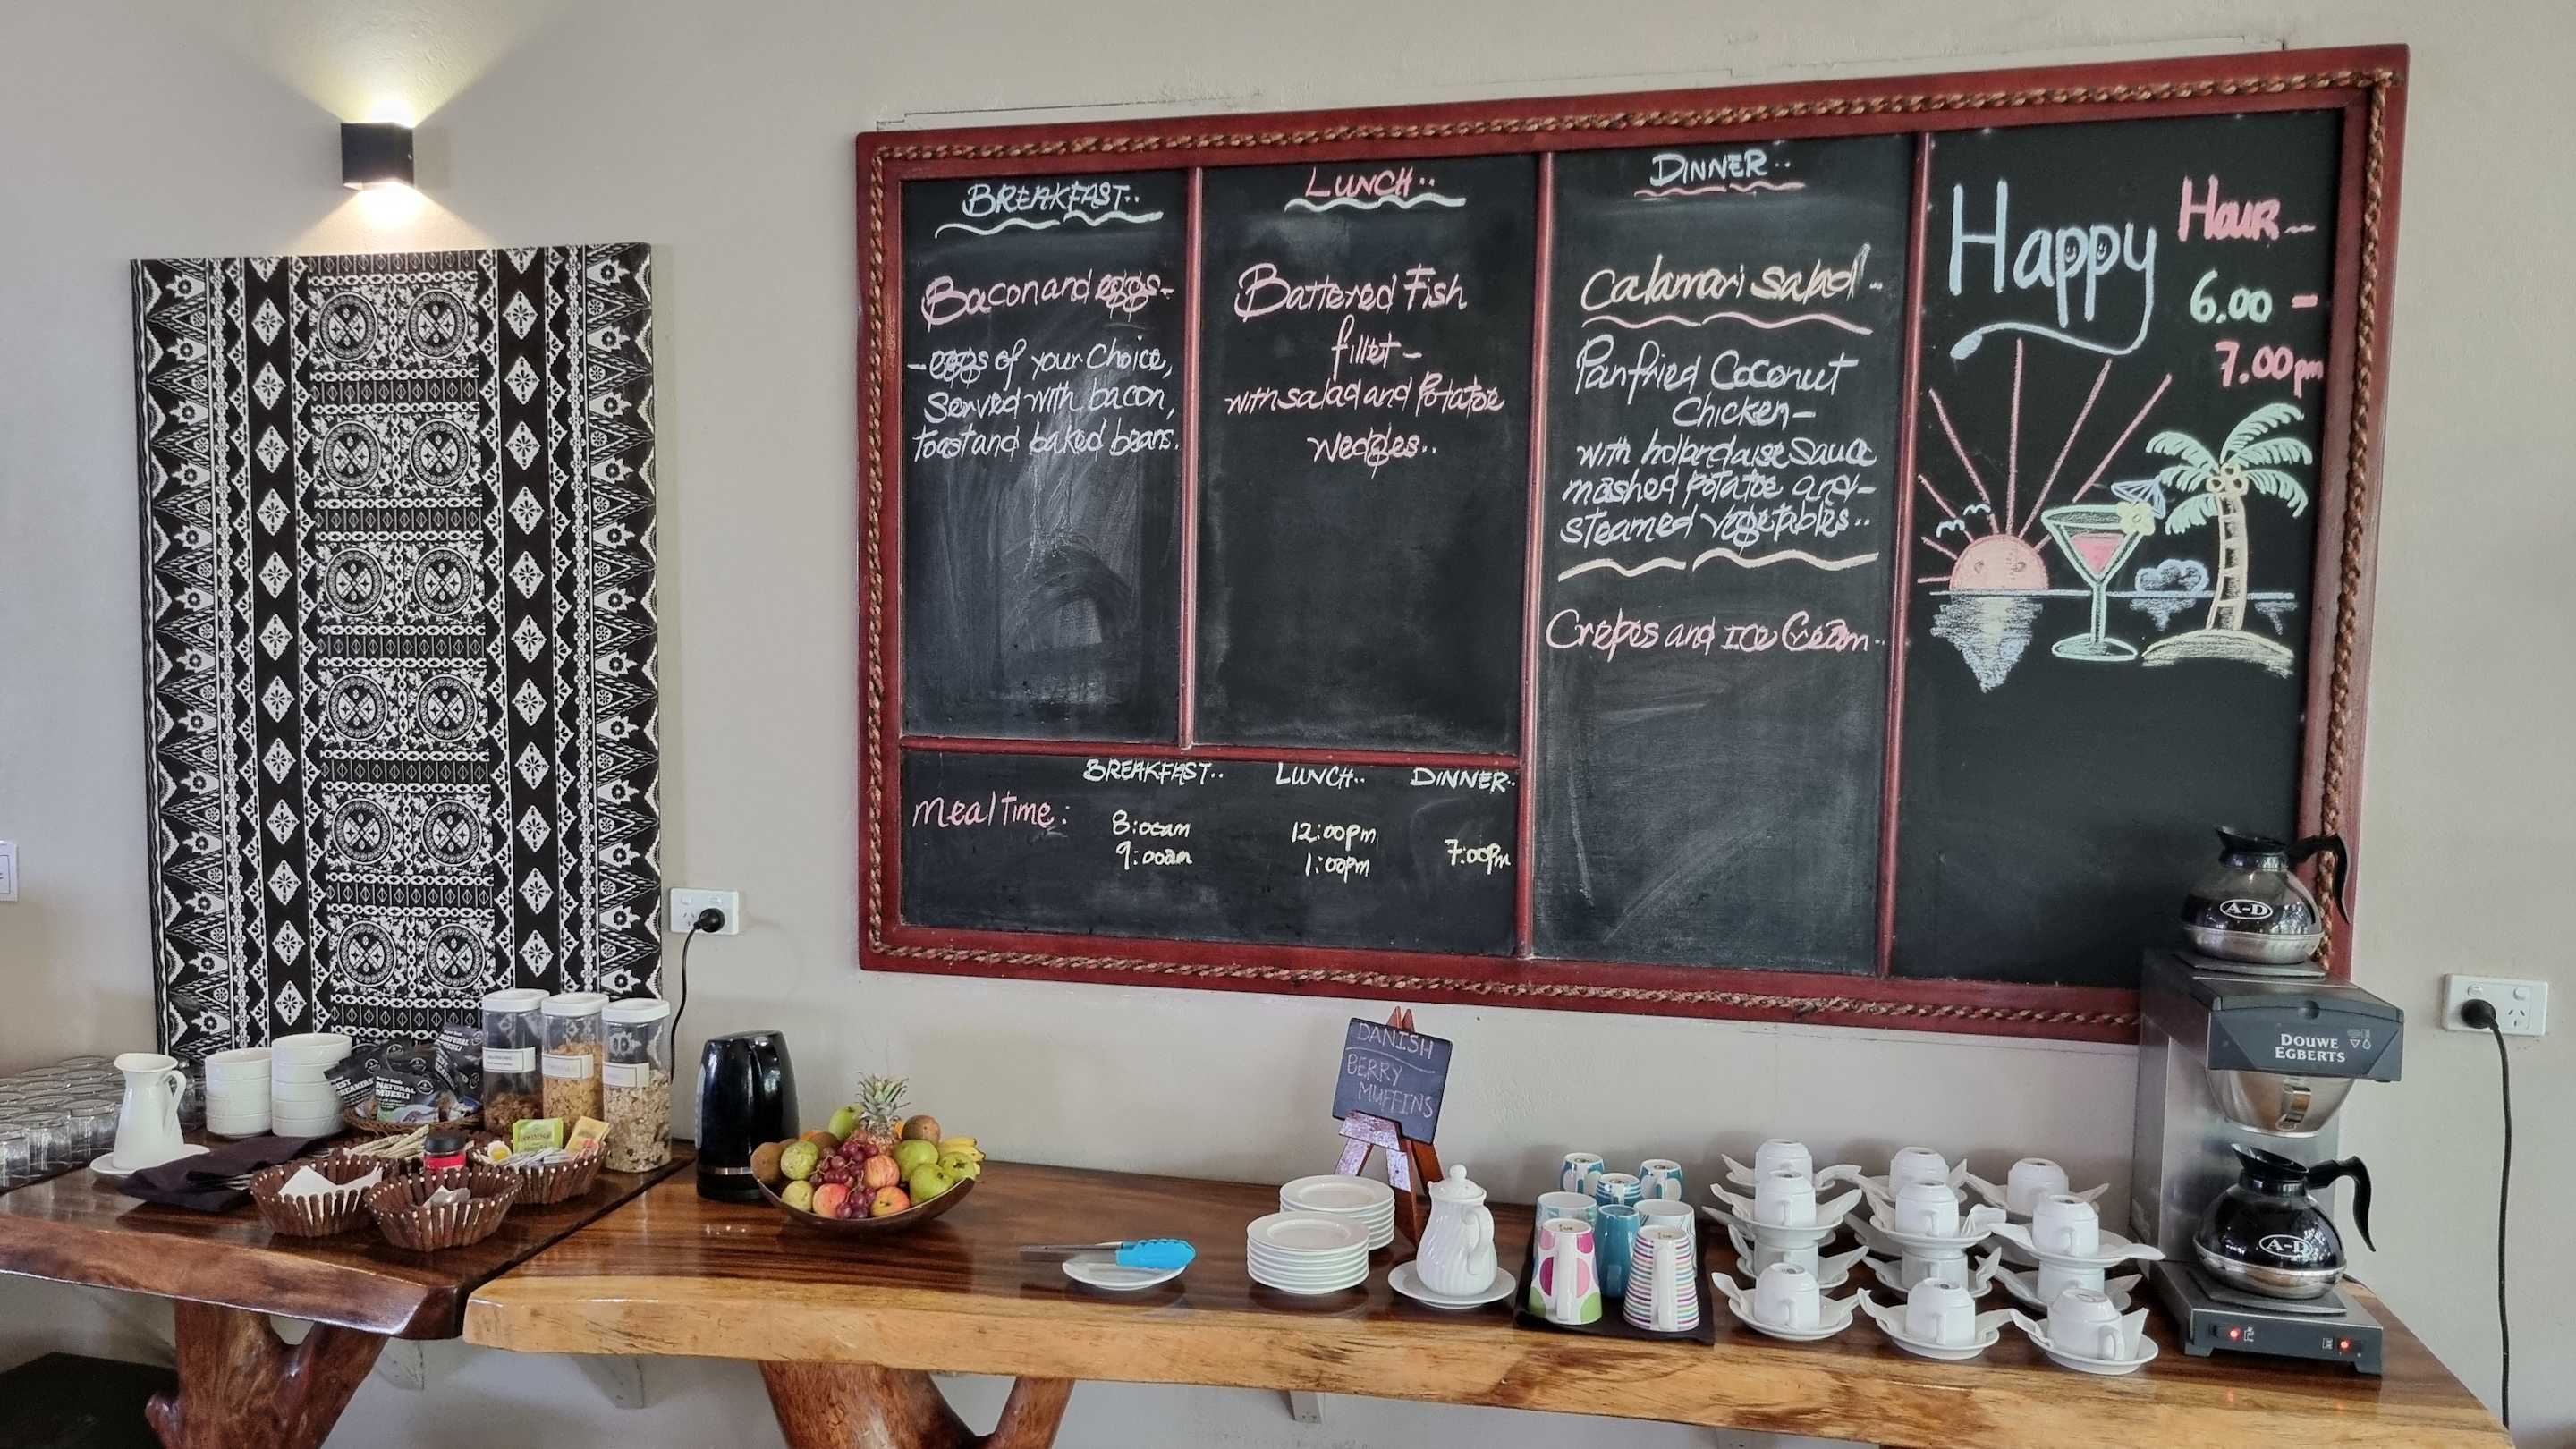 BREAKFAST..
Bacon and eggs-
- eggs of your Choice,
Served with bacon,
toast and baked beans.
LUNCH..
Battered Fish
fillet -
with salad and Potatoe
Wedges..
DINNER..
Calamari Salad..
Panfried Coconut
Chicken-
with hollandaise Sauce
mashed potatoe and-
steamed vegetables..
Crepes and Ice Cream..
Happy
Hour...
6.00 -
7.00pm
BREAKFAST.. LUNCH.. DINNER..
Mealtime: 8:00am 12:00pm 7:00Pm
9:00am 1:00pm
DANISH
BERRY
MUFFINS
NATURAL
MUESLI
NATURAL
MUESLI
A-D
DOUWE
EGBERTS
A-D